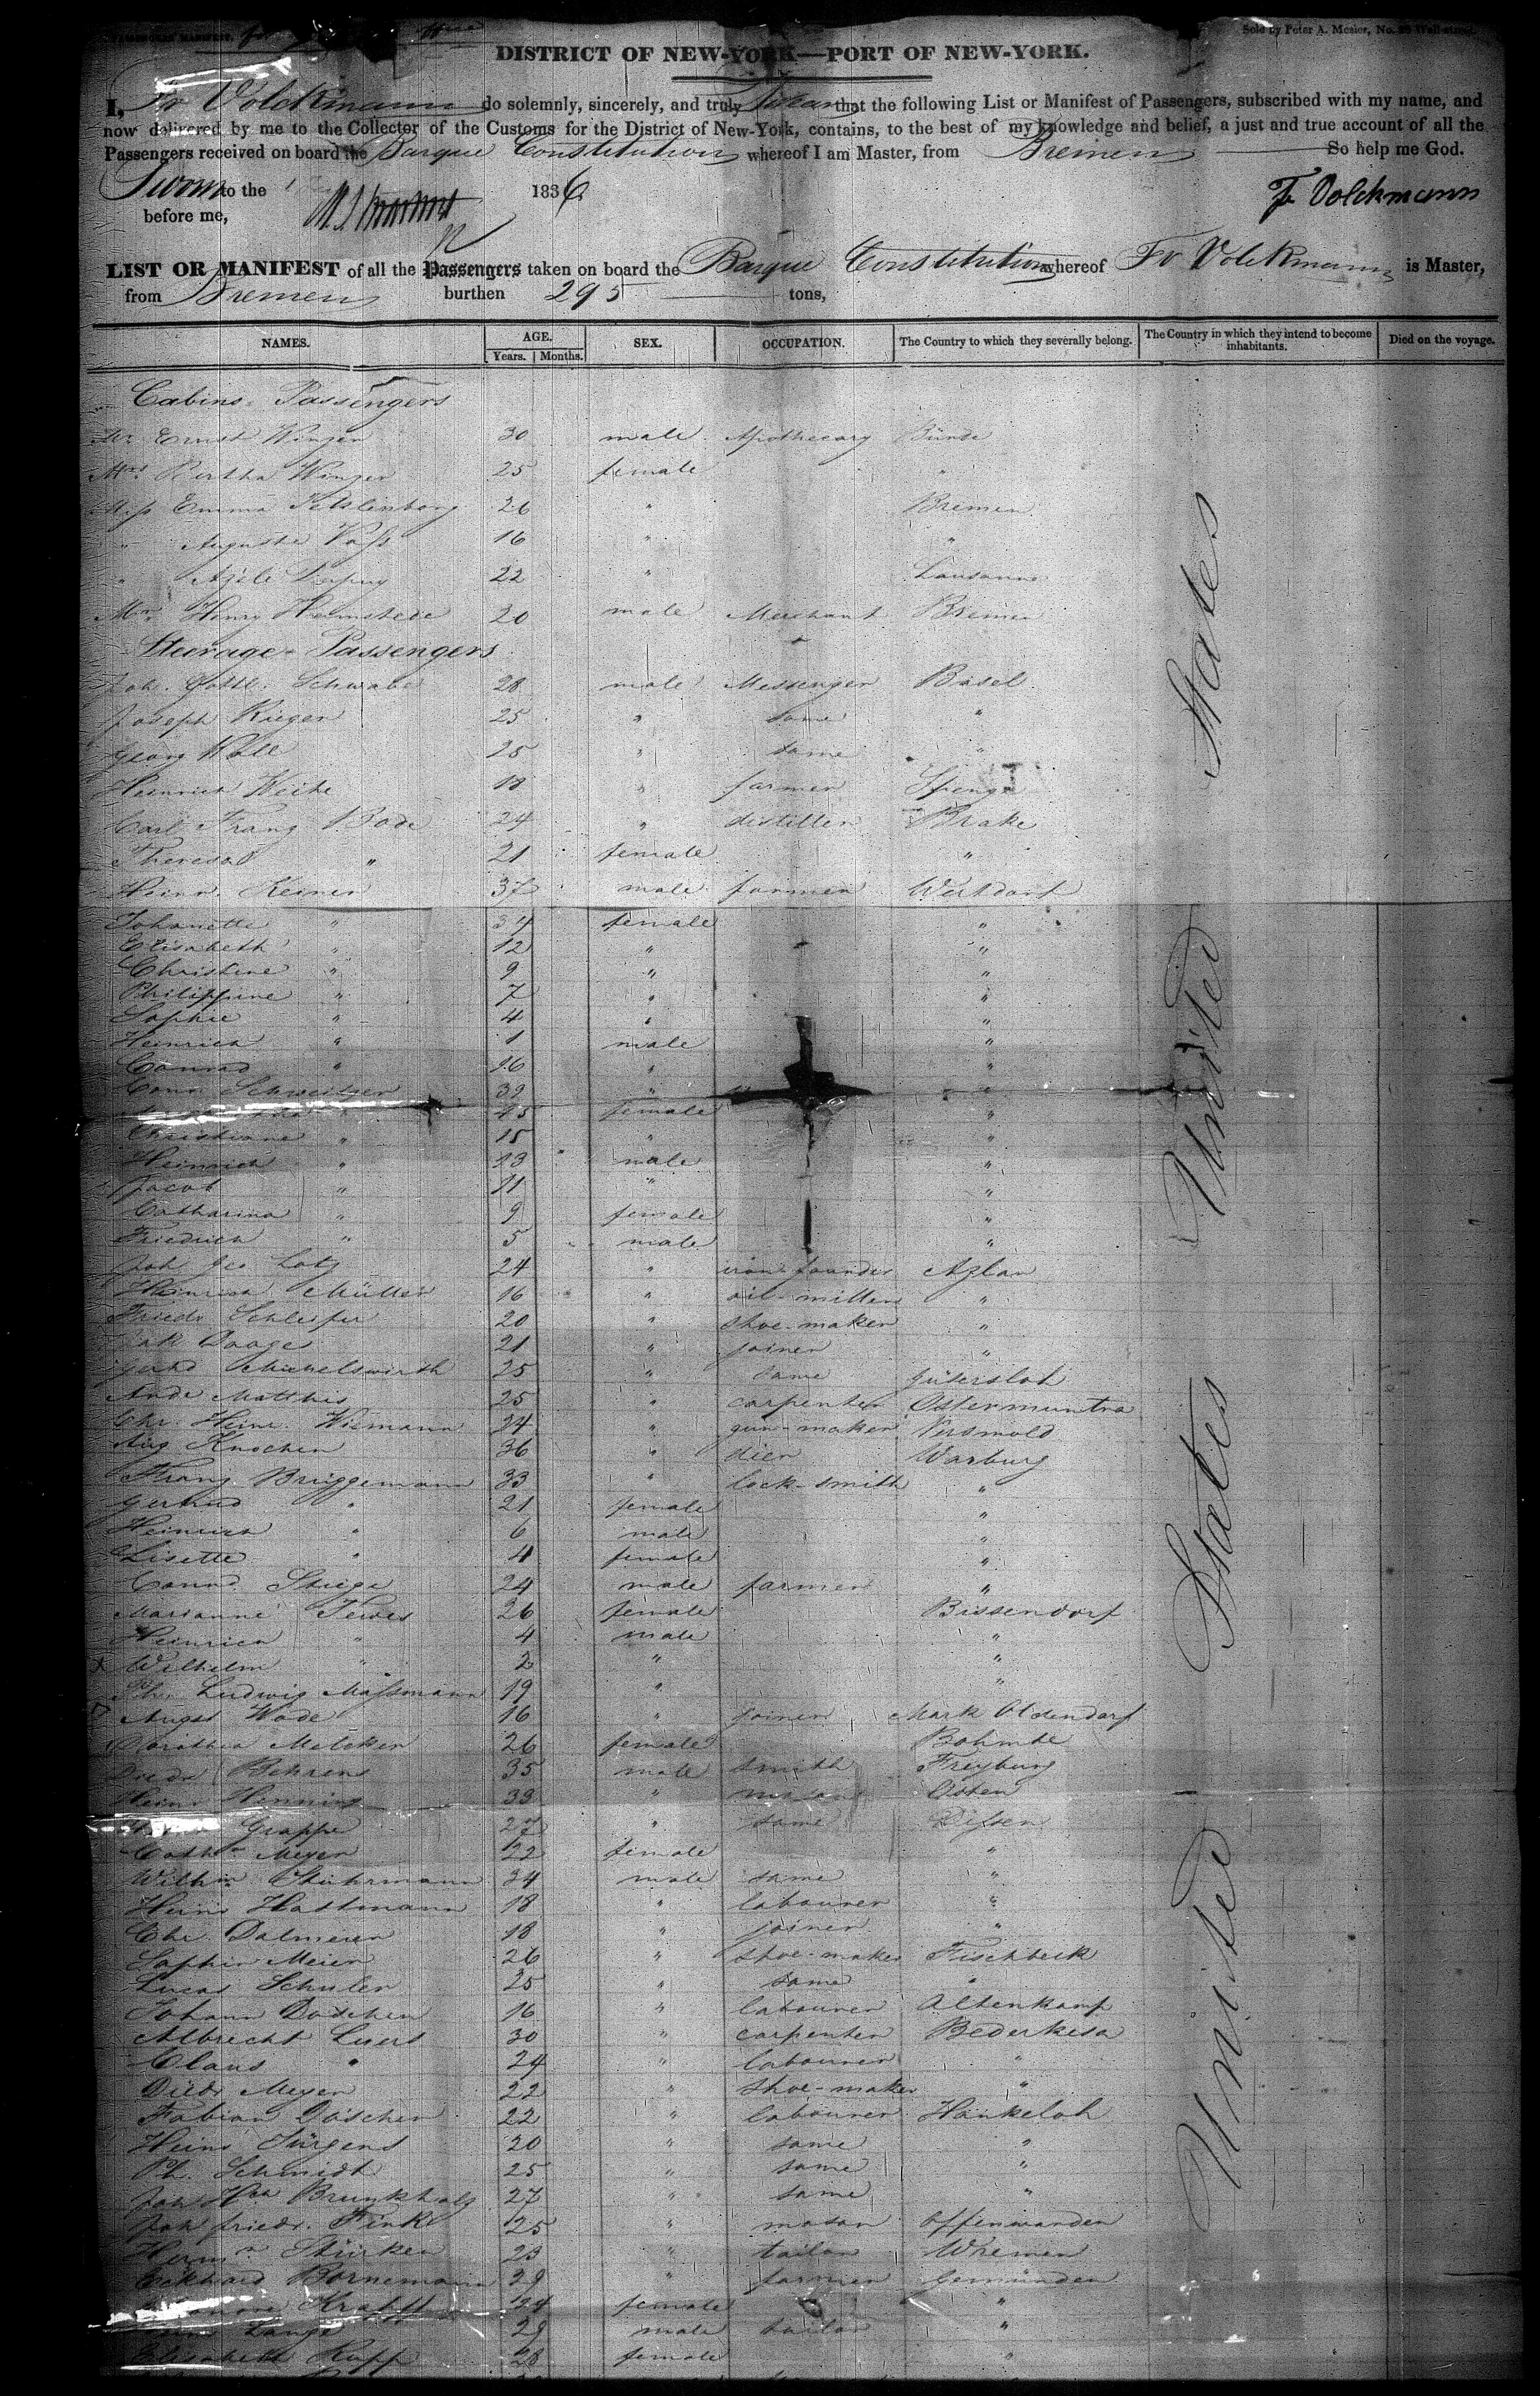 PASSENGER MANIFEST.
Sold by Peter A. Mesier, No. Wall-street.
DISTRICT OF NEW-YORK—PORT OF NEW-YORK.
I, Fr Volckmann do solemnly, sincerely, and truly Swear that the following List or Manifest of Passengers, subscribed with my name, and
now delivered by me to the Collector of the Customs for the District of New-York, contains, to the best of my knowledge and belief, a just and true account of all the
Passengers received on board the Barque Constitution whereof I am Master, from Bremen So help me God.
Sworn to the 1836 Fr Volckmann
before me,
LIST OR MANIFEST of all the Passengers taken on board the Barque Constitution whereof Fr Volckmann is Master,
from Bremen burthen 295 tons,
NAMES. AGE. Years. Months. SEX. OCCUPATION. The Country to which they severally belong. The Country in which they intend to become inhabitants. Died on the voyage.
Cabins Passengers
Mr Ernst Winzer 30 male Apothecary Bünde
Mrs Bertha Winzer 25 female "
Miss Emma 26 " Bremen
" Auguste Vass 16 " "
" 22 " Lausanne
Mr Henry 20 male Merchant Bremen
Steerage-Passengers
Joh. Gottl. Schwabe 28 male Messenger Basel
Joseph Rieger 25 " same "
Georg 25 " same "
Heinrich Weihe 18 " farmer Spenge
Carl Franz Bode 24 " distiller Brake
Theresa " 21 female "
Heinr. Keiner 37 male farmer Werkdorf
Johanette " 34 female "
Elisabeth " 12 " "
Christine " 9 " "
Philippine " 7 " "
Sophie " 4 " "
Heinrich " 1 male "
Conrad " 16 " "
Schweitzer 39 " "
45 female "
Christiane " 15 " "
Heinrich " 13 male "
Jacob " 11 " "
Catharina " 9 female "
Friedrich " 5 male "
Joh Geo Lotz 24 " iron-founder Azlar
Heinrich Müller 16 " oil-miller "
Friedr Schleifer 20 " shoe-maker "
Daage 21 " joiner "
Gerhd Michelswirth 25 " same Gütersloh
Andr Matthes 25 " carpenter Ostermuntra
Chr. Heinr. Wiemann 24 " gun-maker Versmold
Aug Knochen 36 " dier Warburg
Franz Brüggemann 33 " lock-smith "
Gertrud " 21 female "
Heinrich " 6 male "
Lisette " 4 female "
Conrd. Stiege 24 male farmer "
Marianne Tewes 26 female Bissendorf
Heinrich " 4 male "
Wilhelm " 2 " "
Ludwig Massmann 19 " "
August Wode 16 " joiner Mark Oldendorf
Dorothea Melcher 26 female Bohmte
Diedr Behrens 35 male smith Freyburg
Heinr Henning 33 " mason Osten
Grappe 27 " same Dissen
Cathn Meyer 22 female "
Wilhm Stührmann 34 male same "
Heinr Hastmann 18 " labourer "
Chr. Dalmeier 18 " joiner "
Sophir Meier 26 " shoe-maker Fischbeck
Lucas Schuler 25 " same "
Johann Döschen 16 " labourer Altenkamp
Albrecht Luers 30 " carpenter Bederkesa
Claus " 24 " labourer "
Diedr Meyer 22 " shoe-maker "
Fabian Döscher 22 " labourer Hankeloh
Heinr Jürgens 20 " same "
Ph. Schmidt 25 " same "
Joh Hch Brunkholz 27 " same "
Joh friedr. Finke 25 " mason Offenwarden
Hermn Stürken 23 " tailor Wremen
Eckhard Bornemann 39 " farmer Gemünden
Krafft 24 female "
Lange 29 male tailor "
Elisabeth Kupp 28 female "
United States
United States